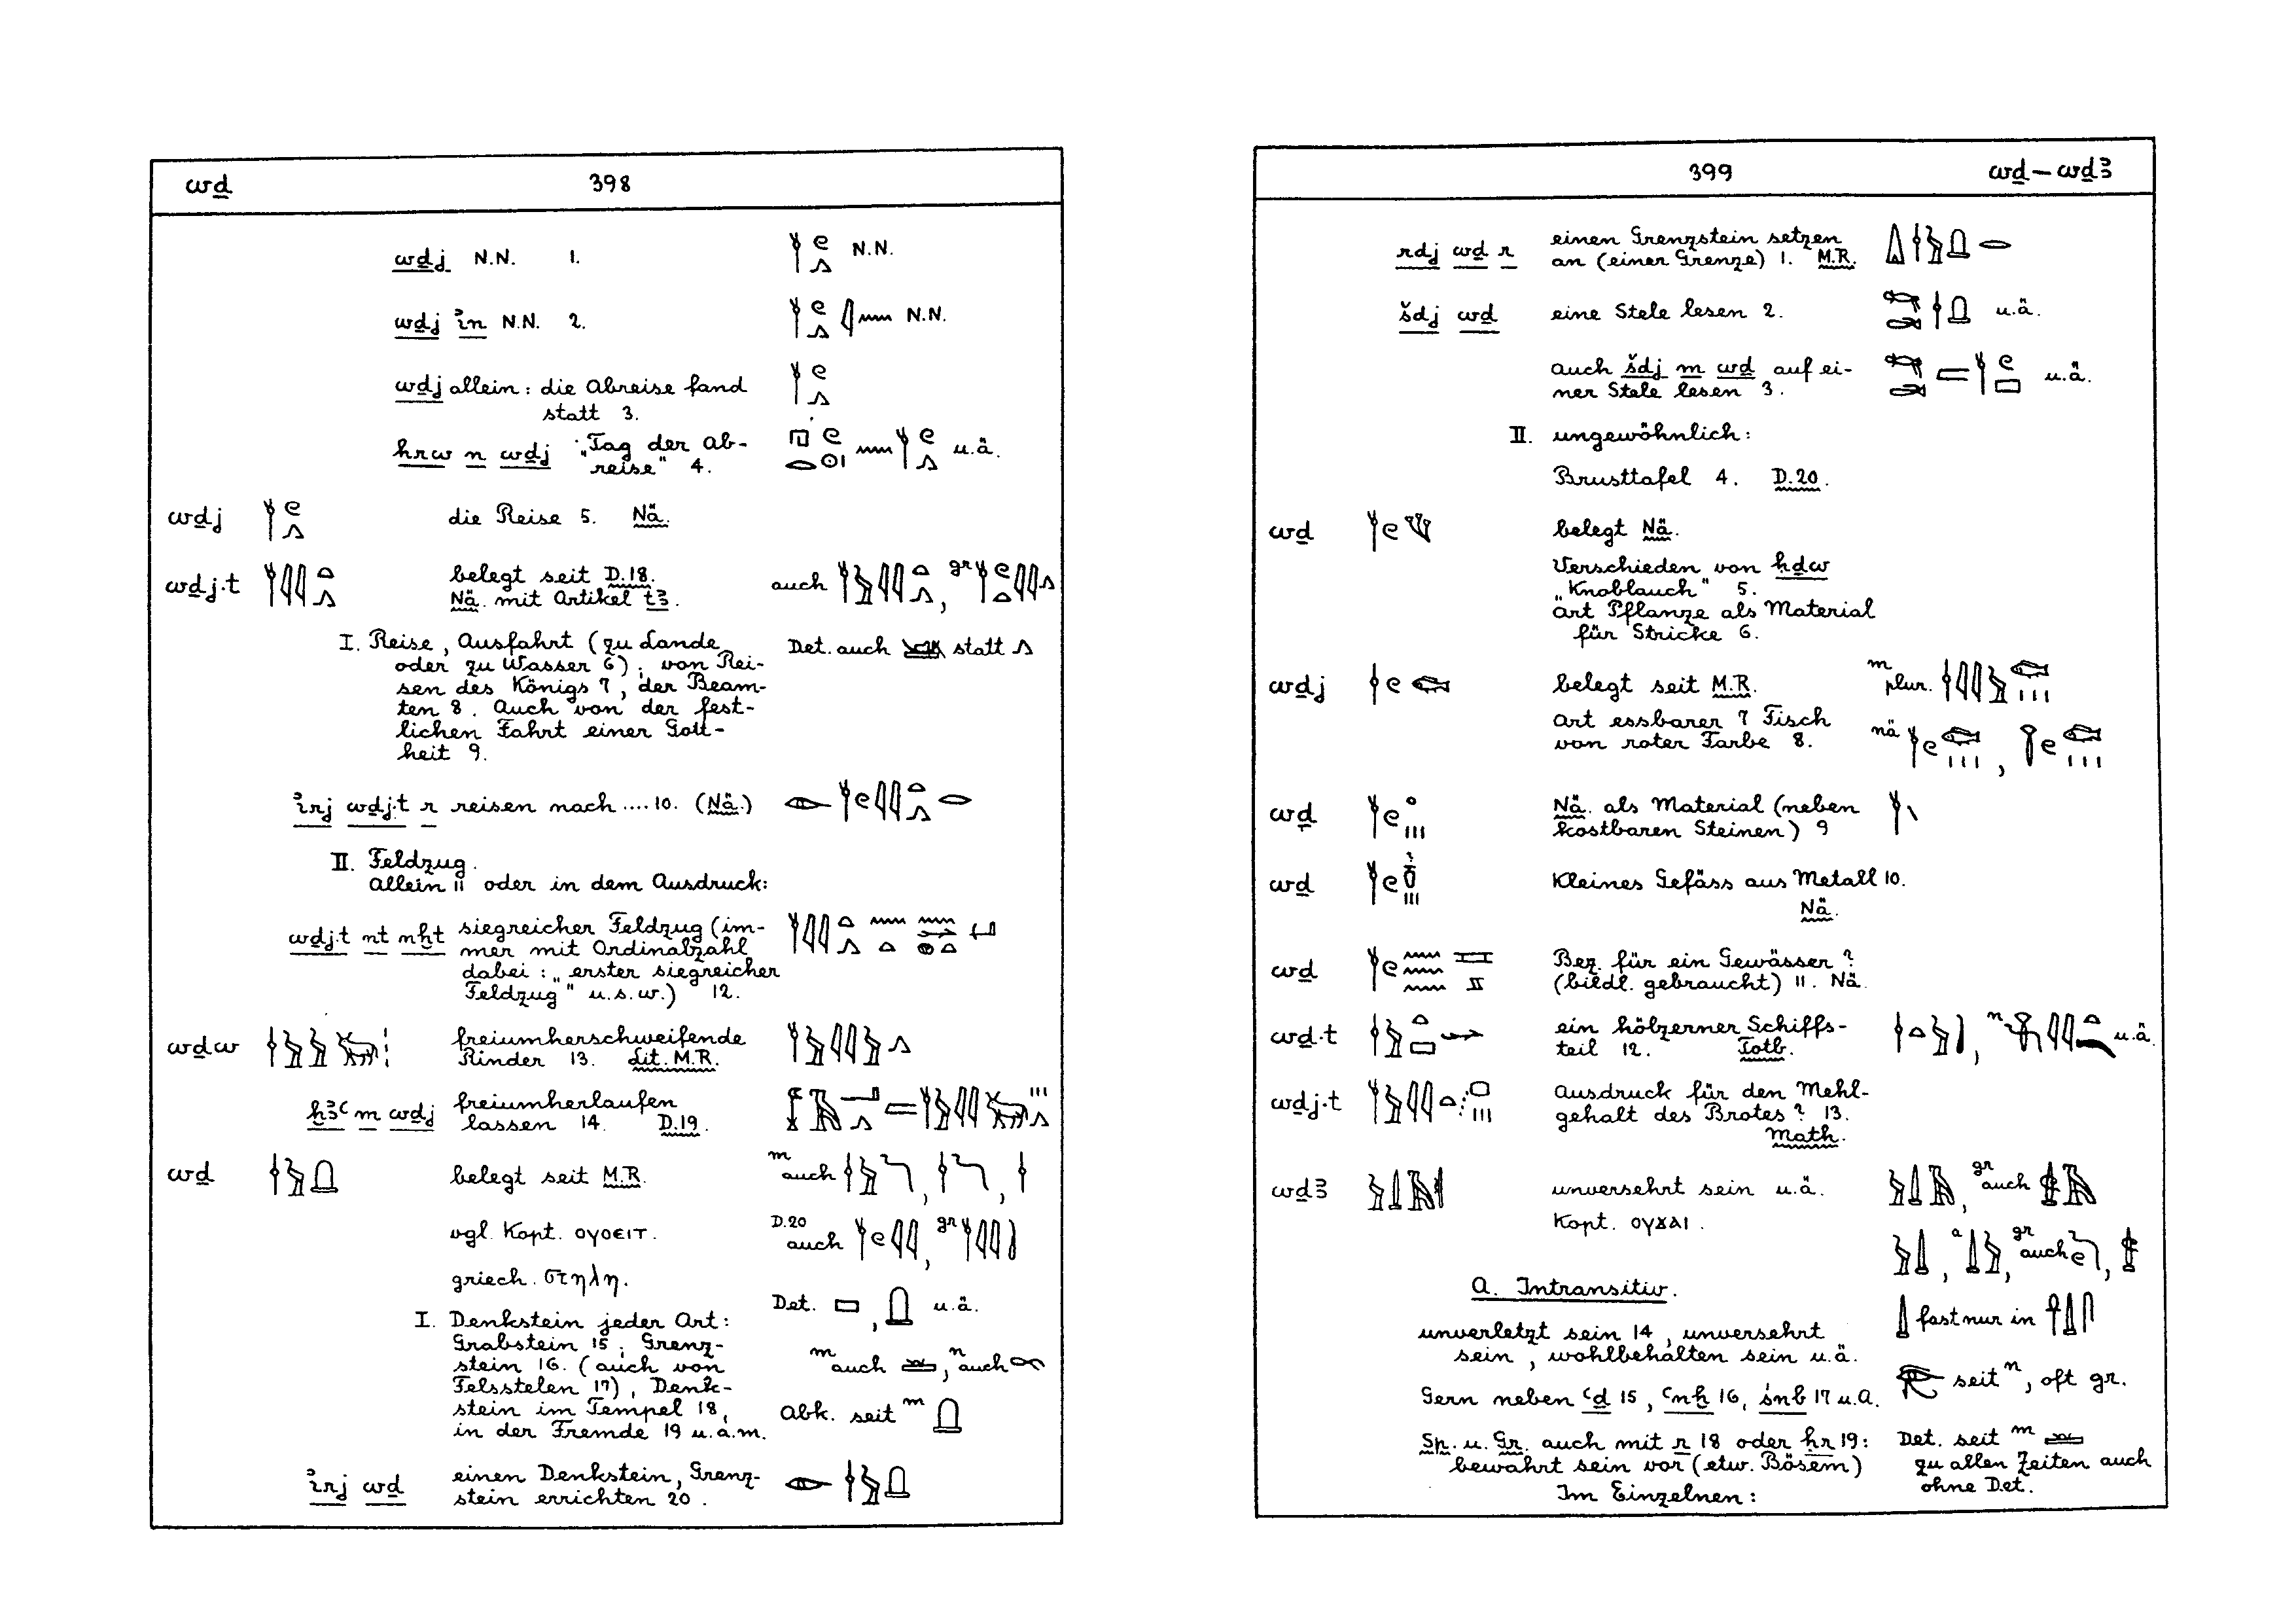 wḏ
398
wḏj N.N. 1. N.N.
wḏj ỉn N.N. 2. N.N.
wḏj allein: die Abreise fand
statt 3.
hrw n wḏj "Tag der Ab-
reise" 4. u.ä.
wḏj die Reise 5. Nä.
wḏj.t belegt seit D.18. auch , gr
Nä. mit Artikel tꜣ.
I. Reise, Ausfahrt (zu Lande Det. auch statt
oder zu Wasser 6); von Rei-
sen des Königs 7, der Beam-
ten 8. Auch von der fest-
lichen Fahrt einer Gott-
heit 9.
ỉrj wḏj.t r reisen nach .... 10. (Nä.)
II. Feldzug.
allein 11 oder in dem Ausdruck:
wḏj.t nt nḫt siegreicher Feldzug (im-
mer mit Ordinalzahl
dabei: "erster siegreicher
Feldzug" u.s.w.) 12.
wḏw freiumherschweifende
Rinder 13. Lit. M.R.
ḫꜣꜥ m wḏj freiumherlaufen
lassen 14. D.19.
wḏ belegt seit M.R. m auch , ,
vgl. Kopt. ⲟⲩⲟⲉⲓⲧ. D.20 auch , gr
griech. στηλη.
Det. , u.ä.
I. Denkstein jeder Art:
Grabstein 15; Grenz-
stein 16. (auch von m auch , n auch
Felsstelen 17), Denk-
stein im Tempel 18, Abk. seit m
in der Fremde 19 u.a.m.
ỉrj wḏ einen Denkstein, Grenz-
stein errichten 20.
399
wḏ — wḏꜣ
rdj wḏ r einen Grenzstein setzen
an (einer Grenze) 1. M.R.
šdj wḏ eine Stele lesen 2. u.ä.
auch šdj m wḏ auf ei-
ner Stele lesen 3. u.ä.
II. ungewöhnlich:
Brusttafel 4. D.20.
wḏ belegt Nä.
Verschieden von ḥḏw
"Knoblauch" 5.
Art Pflanze als Material
für Stricke 6.
wḏj belegt seit M.R. m plur.
Art essbarer 7 Fisch
von roter Farbe 8. nä ,
wḏ Nä. als Material (neben
kostbaren Steinen) 9
wḏ Kleines Gefäss aus Metall 10.
Nä.
wḏ Bez. für ein Gewässer?
(bildl. gebraucht) 11. Nä.
wḏ.t ein hölzerner Schiffs- , n u.ä.
teil 12. Totb.
wḏj.t Ausdruck für den Mehl-
gehalt des Brotes? 13.
Math.
wḏꜣ unversehrt sein u.ä. , gr auch
Kopt. ⲟⲩϫⲁⲓ.
, a , gr auch ,
A. Intransitiv.
fast nur in
unverletzt sein 14, unversehrt
sein, wohlbehalten sein u.ä.
seit n, oft gr.
Gern neben ꜥḏ 15, ꜥnḫ 16, śnb 17 u.a.
Sp. u. Gr. auch mit r 18 oder ḥr 19: Det. seit m
bewahrt sein vor (etw. Bösem) zu allen Zeiten auch
ohne Det.
Im Einzelnen: